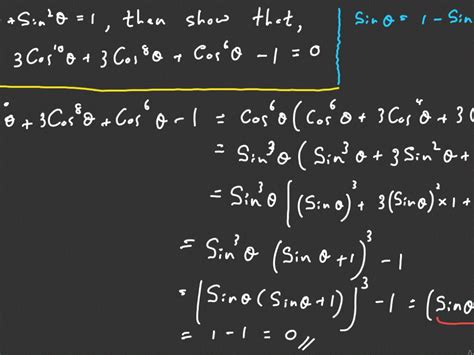 + Sin²θ = 1, then show that,
3Cos¹⁰θ + 3Cos⁸θ + Cos⁶θ - 1 = 0
Sinθ = 1 - Sin
θ + 3Cos⁸θ + Cos⁶θ - 1 = Cos⁶θ (Cos⁶θ + 3Cos⁴θ + 3
= Sin³θ (Sin³θ + 3Sin²θ +
= Sin³θ [(Sinθ)³ + 3(Sinθ)²×1 +
= Sin³θ (Sinθ + 1)³ - 1
= [Sinθ (Sinθ + 1)]³ - 1 = (Sinθ
= 1 - 1 = 0 //